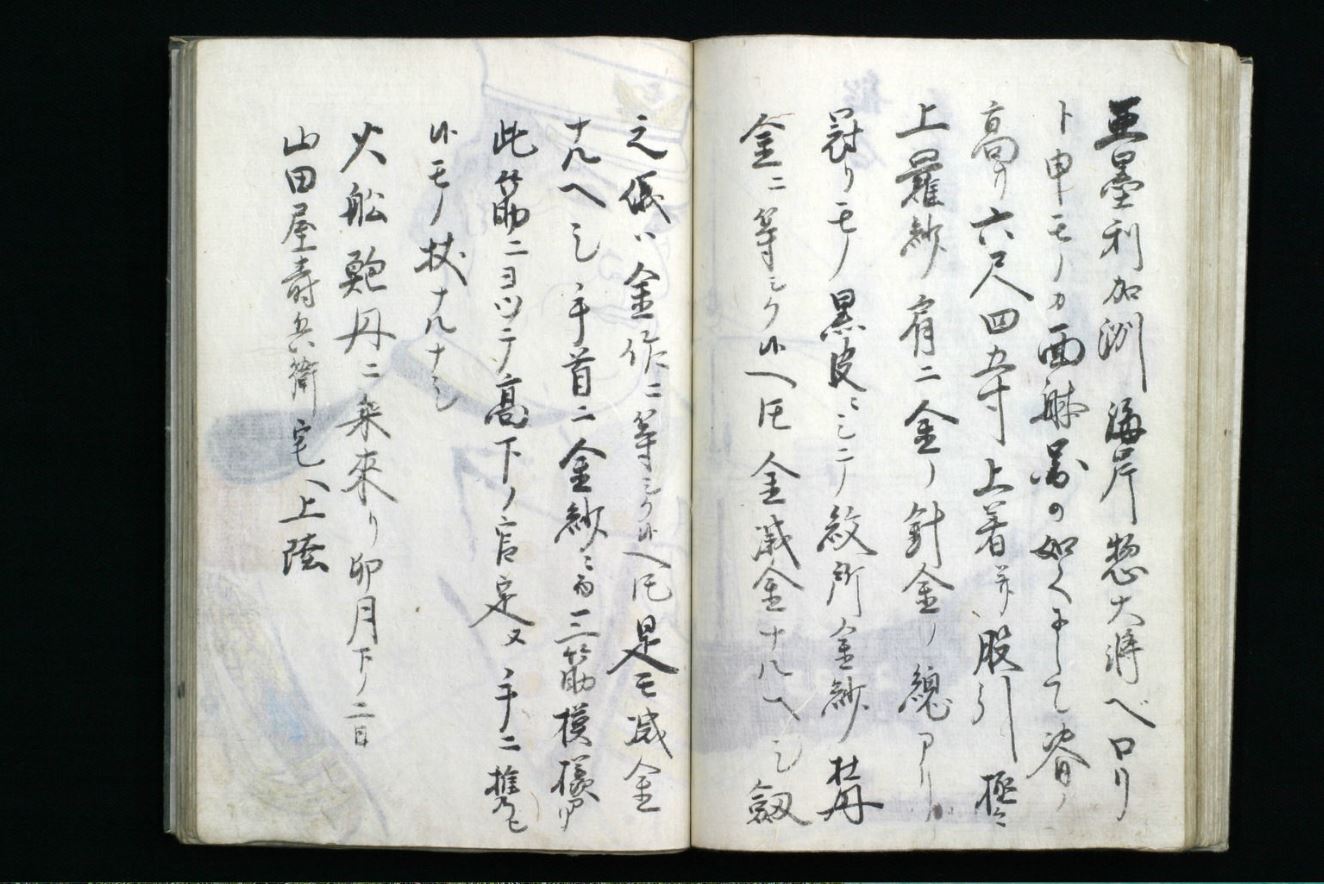 亜墨利加洲海岸惣大将ベロリ
ト申モノカ面躰図の如くにして背ノ
高サ六尺四五寸上着并股引極々
上羅紗肩ニ金ノ針金ノ総アリ
冠リモノ黒皮ニシテ紋所金紗牡丹
金ニ等シク候ヘ𪜈金滅金ナルヘシ劔
之儀ハ金作ニ等シク候ヘ𪜈是モ滅金
ナルヘシ手首ニ金紗ニ而三筋模様アリ
此筋ニヨツテ高下ノ官定ル手ニ携
候モノ杖ナルナシ
火船鮑丹ニ乗来り卯月下ノ二日
山田屋寿兵衛宅へ上陸